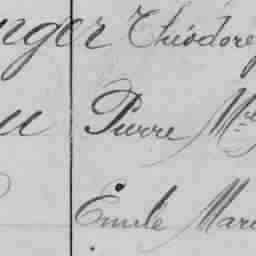 nger Théodore
u Pierre M
Emile Mari